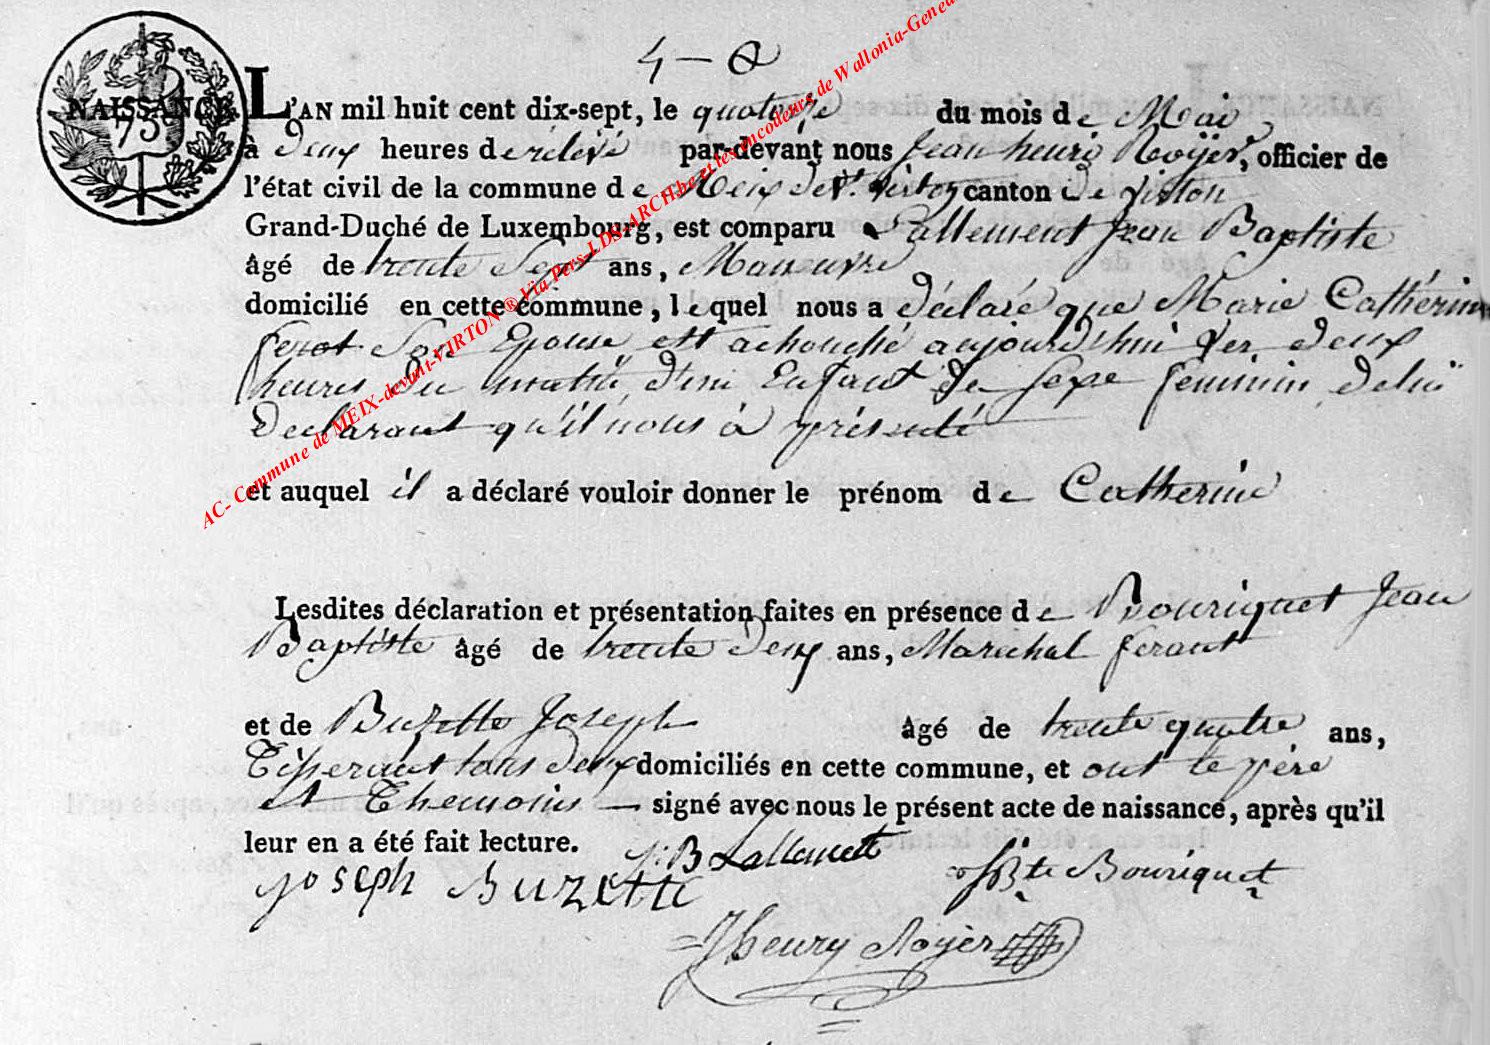 4 – 8
NAISSANCE.
75
L'AN mil huit cent dix-sept, le quatorze du mois de Mai
à deux heures de rélevé par-devant nous Jean henri Royér, officier de
l'état civil de la commune de Meix devt. virton canton de virton
Grand-Duché de Luxembourg, est comparu Lallement Jean Baptiste
âgé de trente Sept ans, Manœuvre
domicilié en cette commune, lequel nous a déclaré que Marie Cathérine
ferot Son Epouse est achouché aujourd'hui ver deux
heures du matin d'un Enfant de Sexe féminin, de luï
declarant qu'il nous à présenté
et auquel il a déclaré vouloir donner le prénom de Catherine
Lesdites déclaration et présentation faites en présence de Bouriquet Jean
Baptiste âgé de trente deux ans, Marechal ferant
et de Buzette Joseph âgé de trente quatre ans,
Tisserant tous deux domiciliés en cette commune, et ont le père
et Themoins — signé avec nous le présent acte de naissance, après qu'il
leur en a été fait lecture.
J: B Lallement
Joseph Buzette
JBte Bouriquet
Jhenry Royèr
AC- Commune de MEIX-devant-VIRTON ® Via Pers-LDS-ARCH.be et les encodeurs de Wallonia-Genea